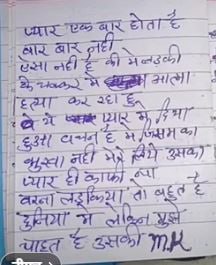 प्यार एक बार होता है
बार बार नहीं
एसा नहीं है की मे लडकी
के चक्कर मे आत्मा
हत्या कर रहा हूं
ये प्यार मे दिया
हुआ वचन है मे जिसम का
भुखा नहीं मेरे लिये उसका
प्यार ही काफी था
वरना लडकिया तो बहुत है
दुनिया मे लेकिन मुझे
चाहत है उसकी MK